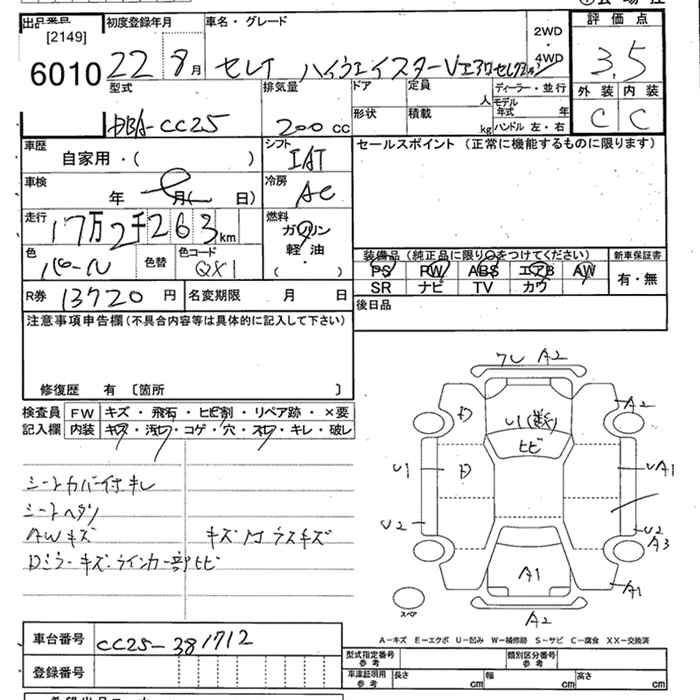 出品番号
[2149]
6010
初度登録年月
22 8月
車名・グレード
セレナ ハイウェイスターVエアロセレク
2WD
・
4WD
評価点
3.5
外装 内装
C C
型式
DBA-CC25
排気量
200cc
ドア
形状
定員
人
積載
kg
ディーラー・並行
モデル
年式 年
ハンドル 左・右
車歴
自家用・( )
シフト
IAT
セールスポイント (正常に機能するものに限ります)
車検
年 月( 日)
冷房
AC
走行
17万2千263km
燃料
ガソリン
軽油
( )
色
パール
色替
色コード
QX1
装備品 (純正品に限り○をつけてください)
新車保証書
PS PW ABS エアB AW
SR ナビ TV カワ
有・無
R券 13720円
名変期限 月 日
後日品
注意事項申告欄(不具合内容等は具体的に記入して下さい)
修復歴 有 〔箇所 〕
検査員 FW キズ・飛石・ヒビ割・リペア跡・×要
記入欄 内装 キズ・汚レ・コゲ・穴・スレ・キレ・破レ
シートカバー付キレ
シートヘタリ
AWキズ キズ ガラスキズ
Dミラーキズ・ウインカー部ヒビ
ワレ A2
A2
U1(数)
ヒビ
U1
UA1
U2
U2
A3
A1
A1
A2
スペア
A−キズ E−エクボ U−凹み W−補修跡 S−サビ C−腐食 XX−交換済
車台番号 CC25-381712
登録番号
型式指定番号
参考
類別区分番号
参考
車庫証明用
参考
長さ cm 幅 cm 高さ cm